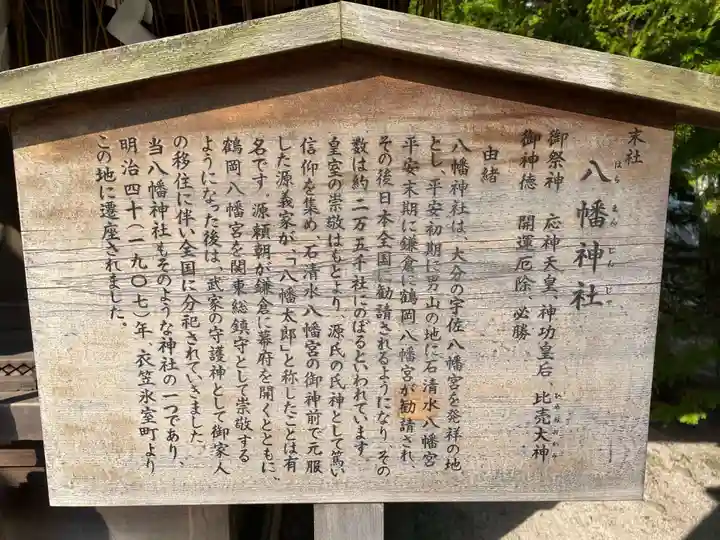 末社
八幡神社
御祭神　応神天皇、神功皇后、比売大神
御神徳　開運厄除、必勝
由緒
八幡神社は、大分の宇佐八幡宮を発祥の地
とし、平安初期に男山の地に石清水八幡宮
平安末期に鎌倉に鶴岡八幡宮が勧請され、
その後日本全国に勧請されるようになり、その
数は約二万五千社にのぼるといわれています。
皇室の崇敬はもとより、源氏の氏神として篤い
信仰を集め、石清水八幡宮の御神前で元服
した源義家が、「八幡太郎」と称したことは有
名です。源頼朝が鎌倉に幕府を開くとともに、
鶴岡八幡宮を関東総鎮守として崇敬する
ようになった後は、武家の守護神として御家人
の移住に伴い全国に分祀されていきました。
当八幡神社もそのような神社の一つであり、
明治四十（一九〇七）年、衣笠氷室町より
この地に遷座されました。